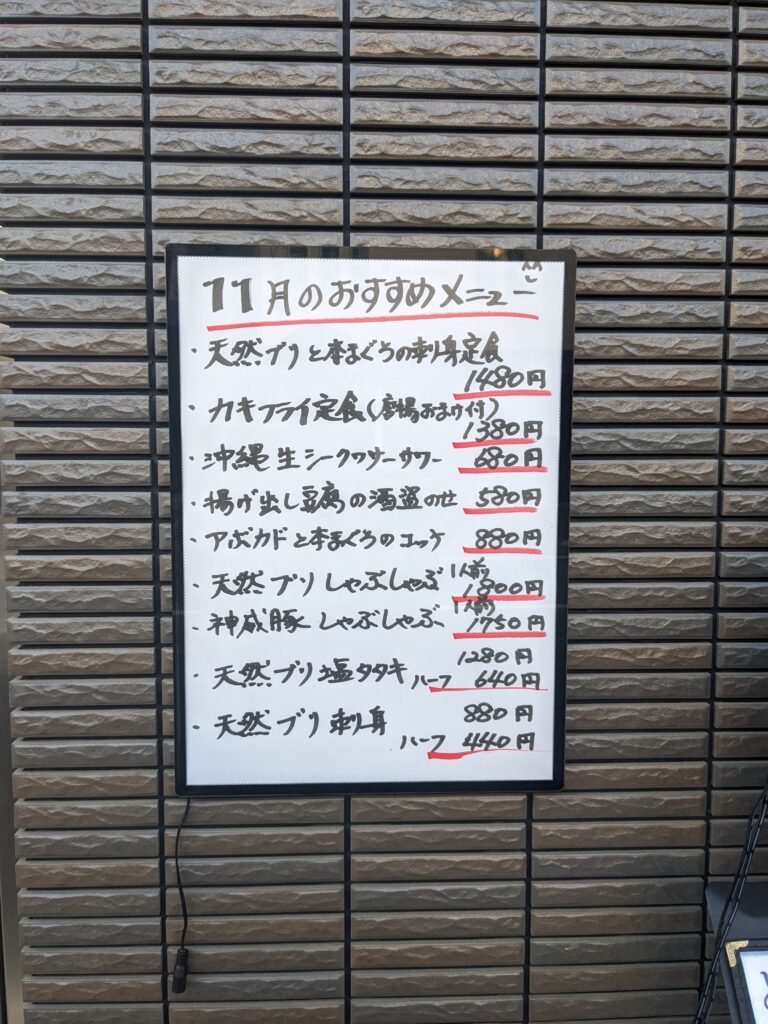 11月のおすすめメニュー
・天然ブリと本まぐろの刺身定食
1480円
・カキフライ定食(唐揚おまけ付)
1380円
・沖縄生シークワサーサワー 680円
・揚げ出し豆腐の酒盗のせ 580円
・アボカドと本まぐろのユッケ 880円
・天然ブリしゃぶしゃぶ 1人前 1800円
・神威豚しゃぶしゃぶ 1人前 1750円
・天然ブリ塩タタキ 1280円
ハーフ 640円
・天然ブリ刺身 880円
ハーフ 440円